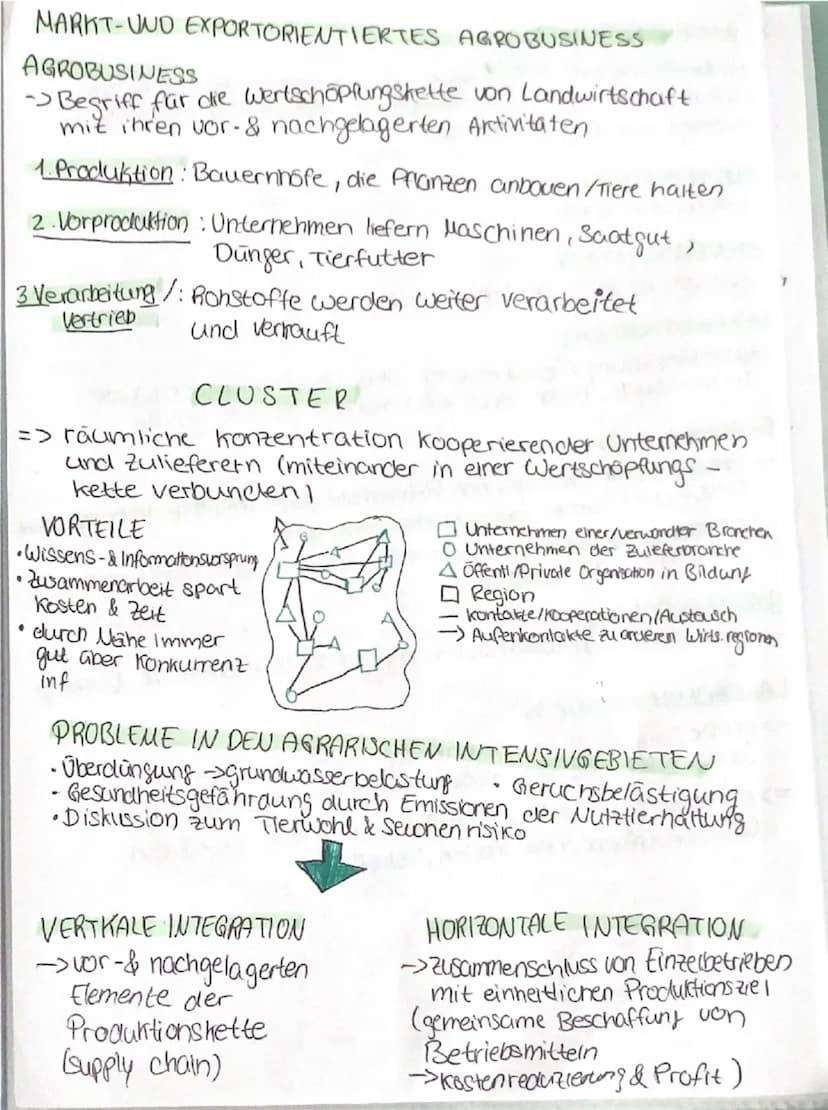 MARKT-UND EXPORTORIENTIERTES AGROBUSINESS
AGROBUSINESS
-> Begriff für die Wertschöpfungskette von Landwirtschaft
mit ihren vor-& nachgelagerten Aktivitäten
1. Produktion: Bauernhöfe, die Pflanzen anbauen/Tiere halten
2. Vorproduktion: Unternehmen liefern Maschinen, Saatgut,
Dünger, Tierfutter
3 Verarbeitung/: Rohstoffe werden weiter verarbeitet
Vertrieb und verkauft
CLUSTER
=> räumliche Konzentration kooperierender Unternehmen
und Zulieferern (miteinander in einer Wertschöpfungs-
kette verbunden)
VORTEILE
• Wissens-& Informationsvorsprung
• Zusammenarbeit spart
Kosten & Zeit
• durch Nähe immer
gut über Konkurrenz
inf
Unternehmen einer/verwandter Branchen
Unternehmen der Zulieferbranche
Öffentl/Private Organisation in Bildung
Region
— Kontakte/Kooperationen/Austausch
-> Außenkontakte zu anderen Wirts.regionen
PROBLEME IN DEN AGRARISCHEN INTENSIVGEBIETEN
• Überdüngung -> grundwasserbelastung • Geruchsbelästigung
- Gesundheitsgefährdung durch Emissionen der Nutztierhaltung
• Diskussion zum Tierwohl & Seuchenrisiko
VERTKALE INTEGRATION
-> vor-& nachgelagerten
Elemente der
Produktionskette
(supply chain)
HORIZONTALE INTEGRATION
-> Zusammenschluss von Einzelbetrieben
mit einheitlichen Produktionsziel
(gemeinsame Beschaffung von
Betriebsmitteln
-> Kostenreduzierung & Profit)